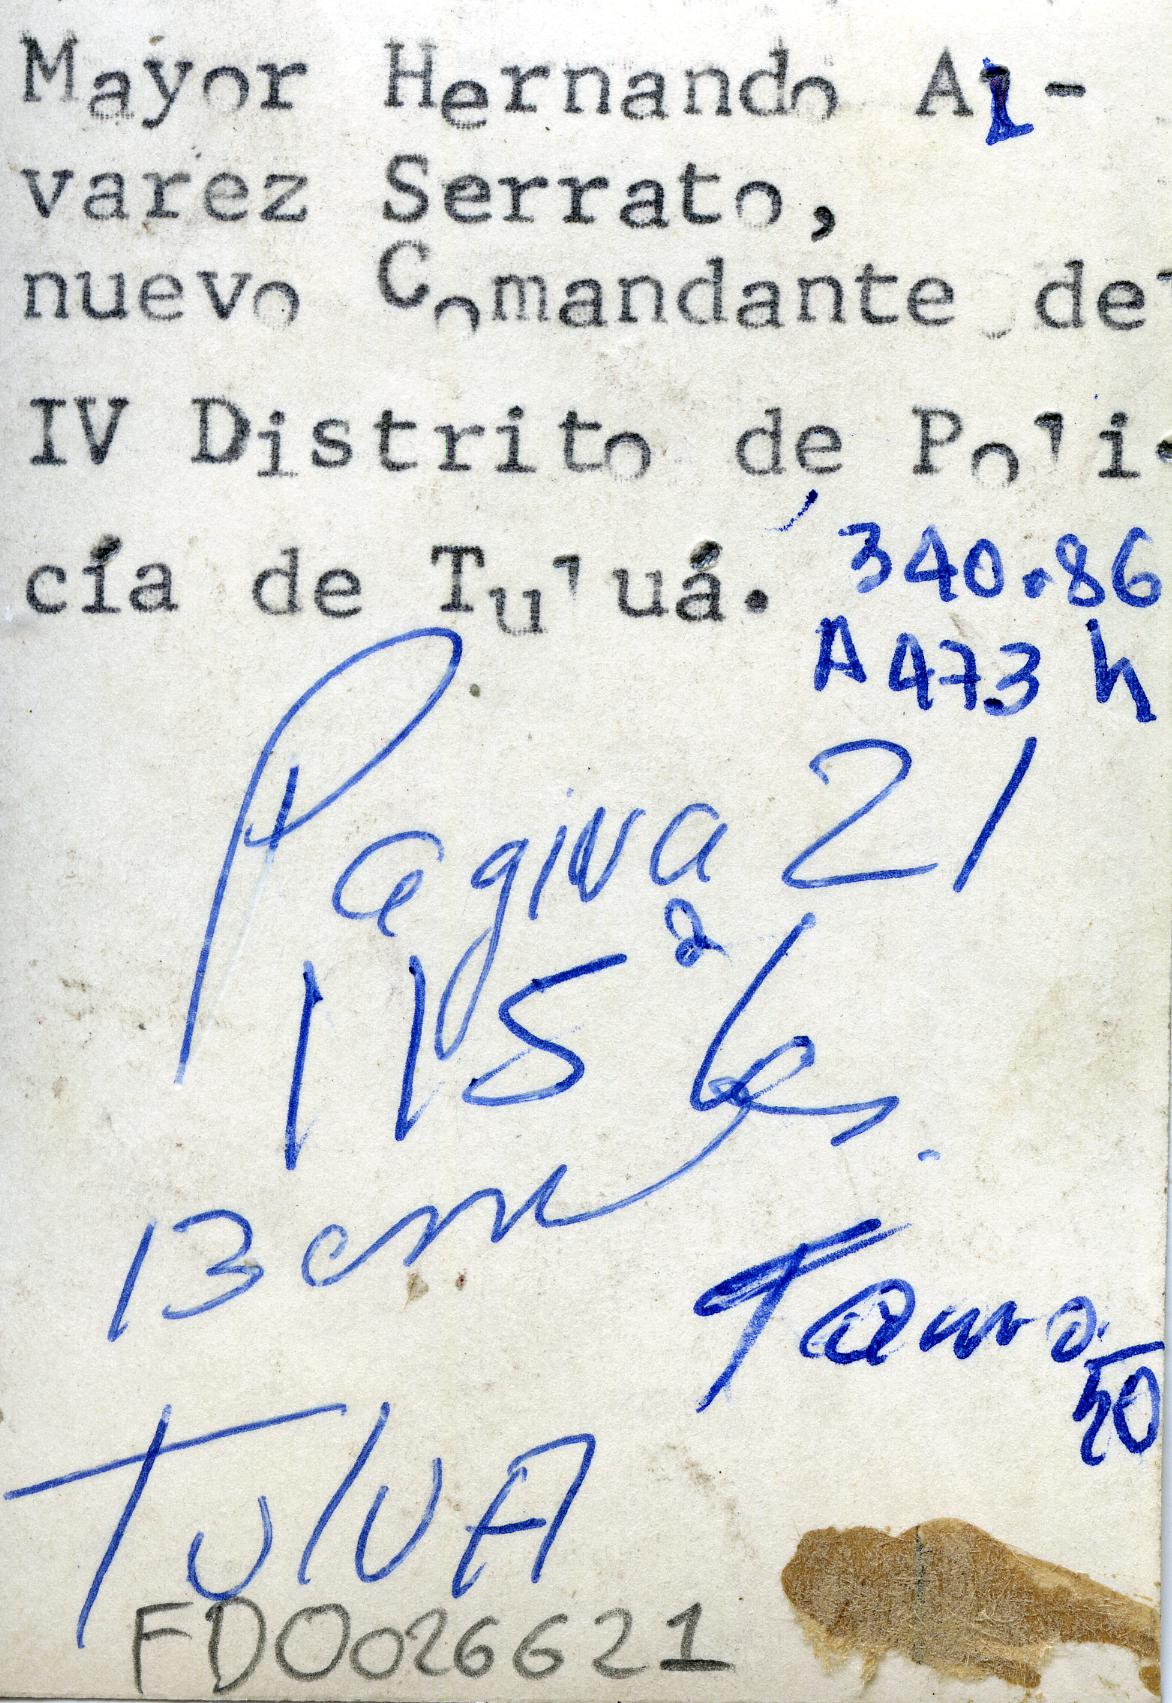 Mayor Hernando Al-
varez Serrato,
nuevo Comandante del
IV Distrito de Poli-
cía de Tuluá.
340.86
A473h
Pagina 21
115
13 cm
50
TulUA
FD0026621